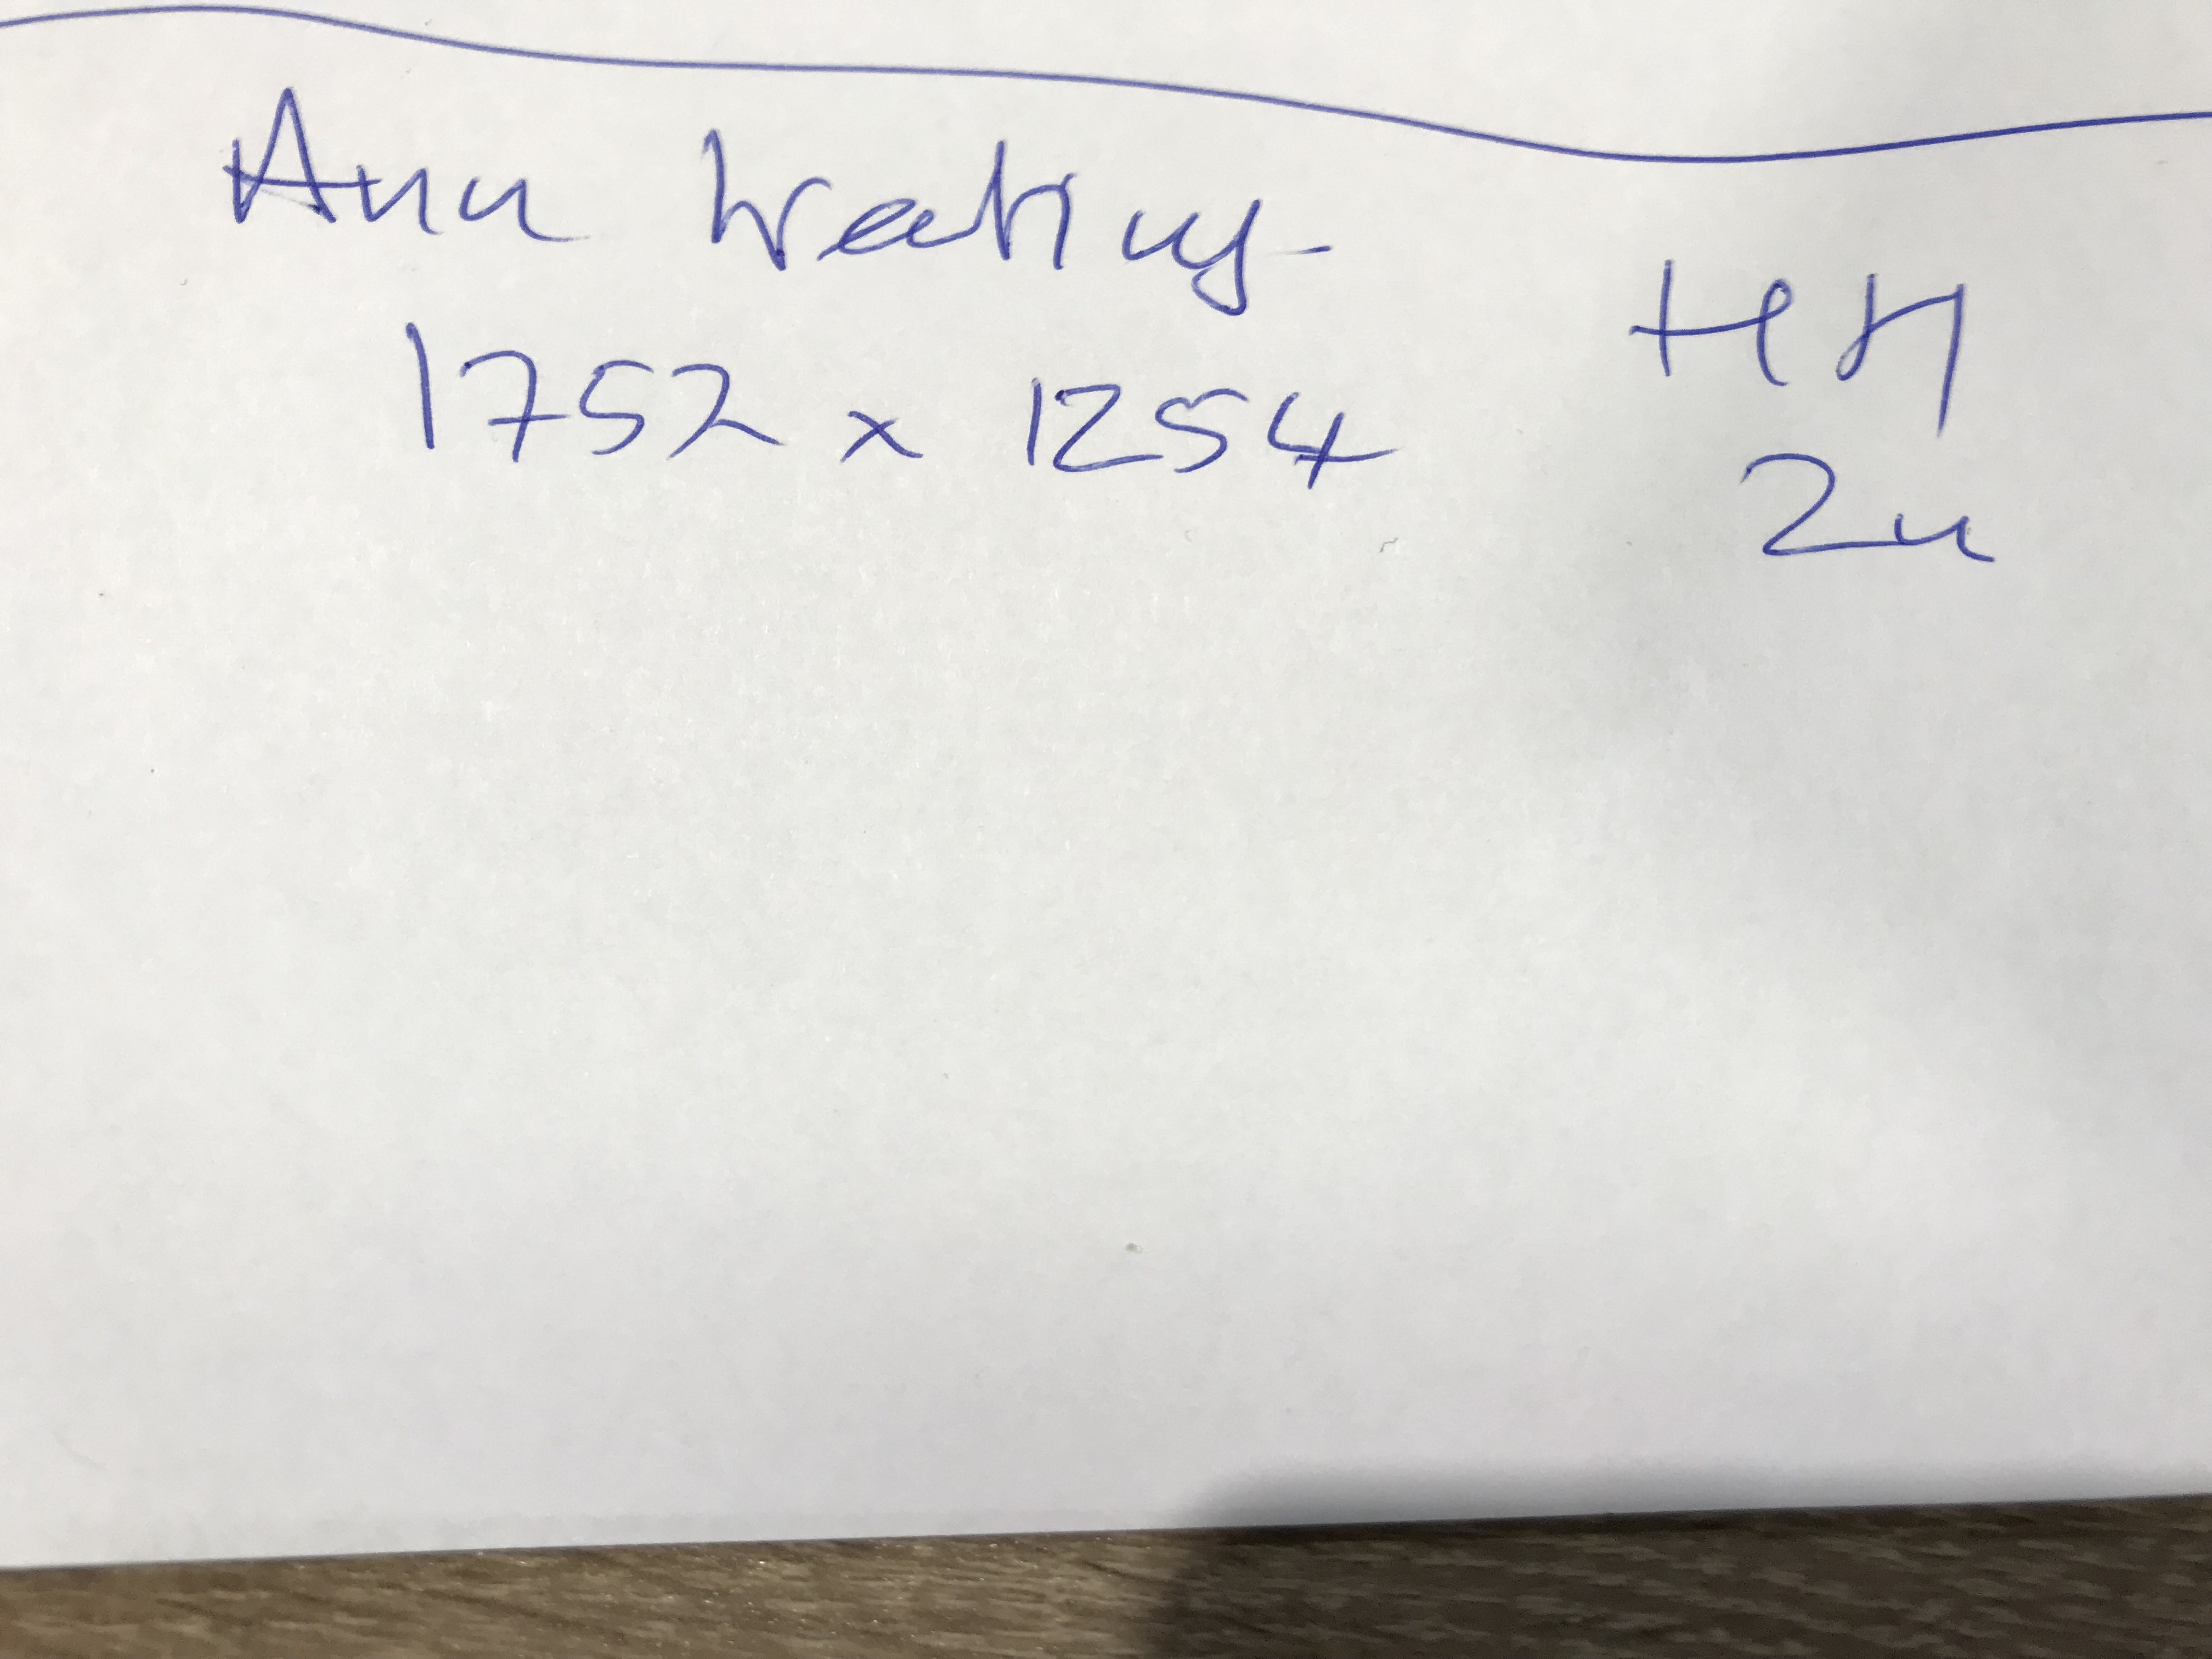 Ann
1752 x 1254
HH
2u